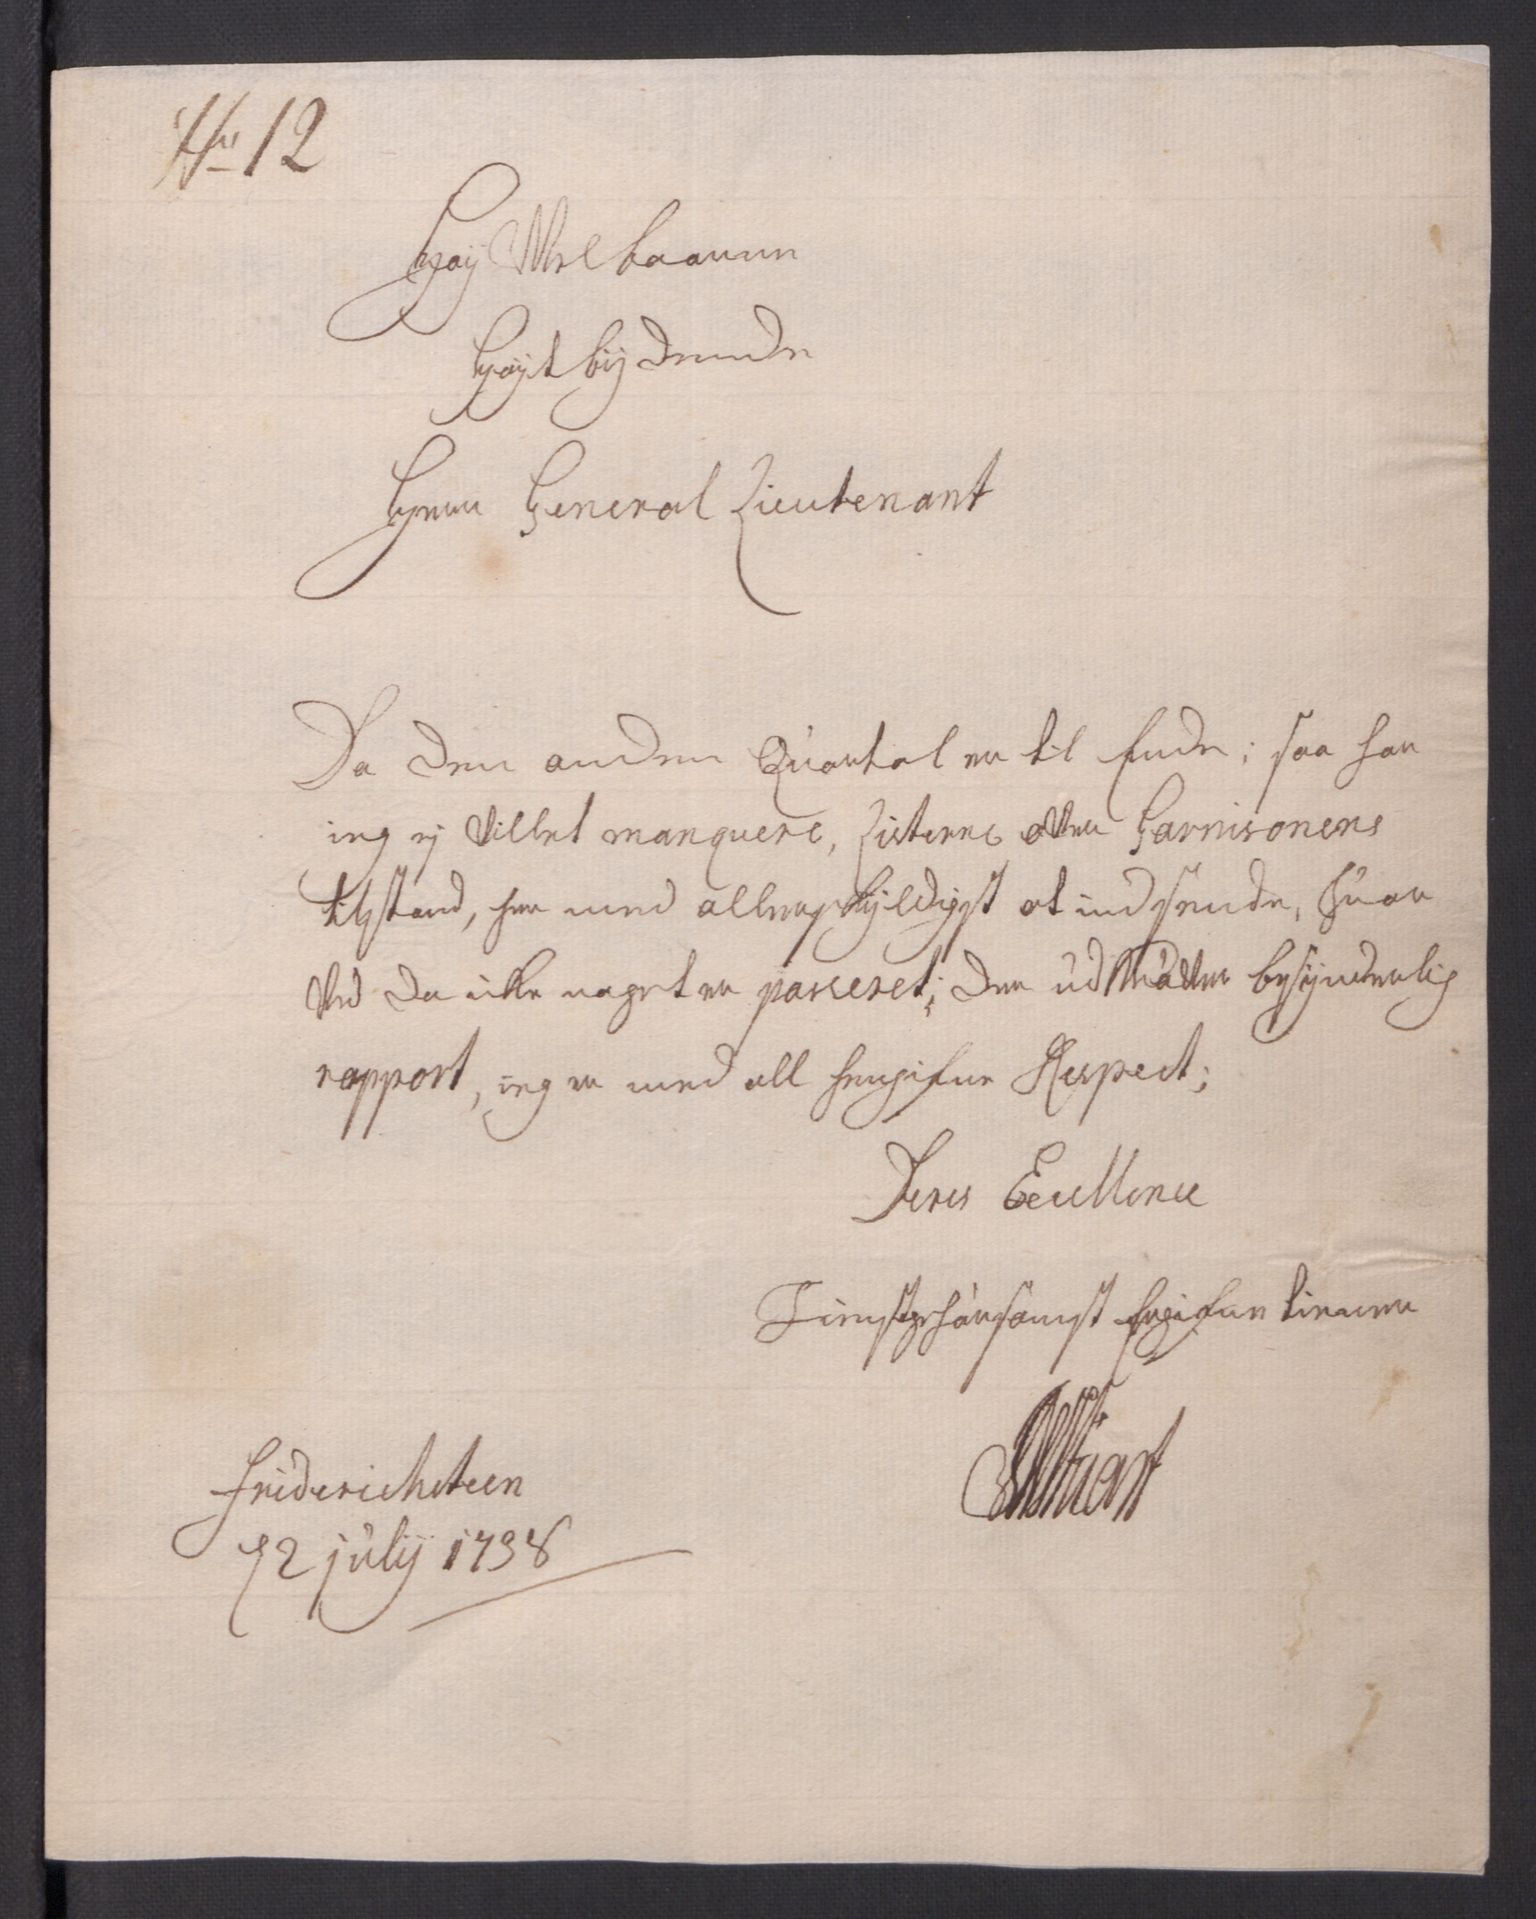 No 12
Høy Welbaarne
Høyt bydende
Herr General Lieutenant
Da den anden Quartal er til Ende; saa har
ieg ej villet manquere, Listerne over Garnisonens
tilstand, her med allerskyldigst at indsende, hvor
ved da ikke noget er passeret; der ud kræver besynderlig
rapport, ieg er med all hengifne Respect;
Deres Excellence
Tienstgehorsamst hengifne tienner
Stuart
Friderichsteen
12 julij 1738